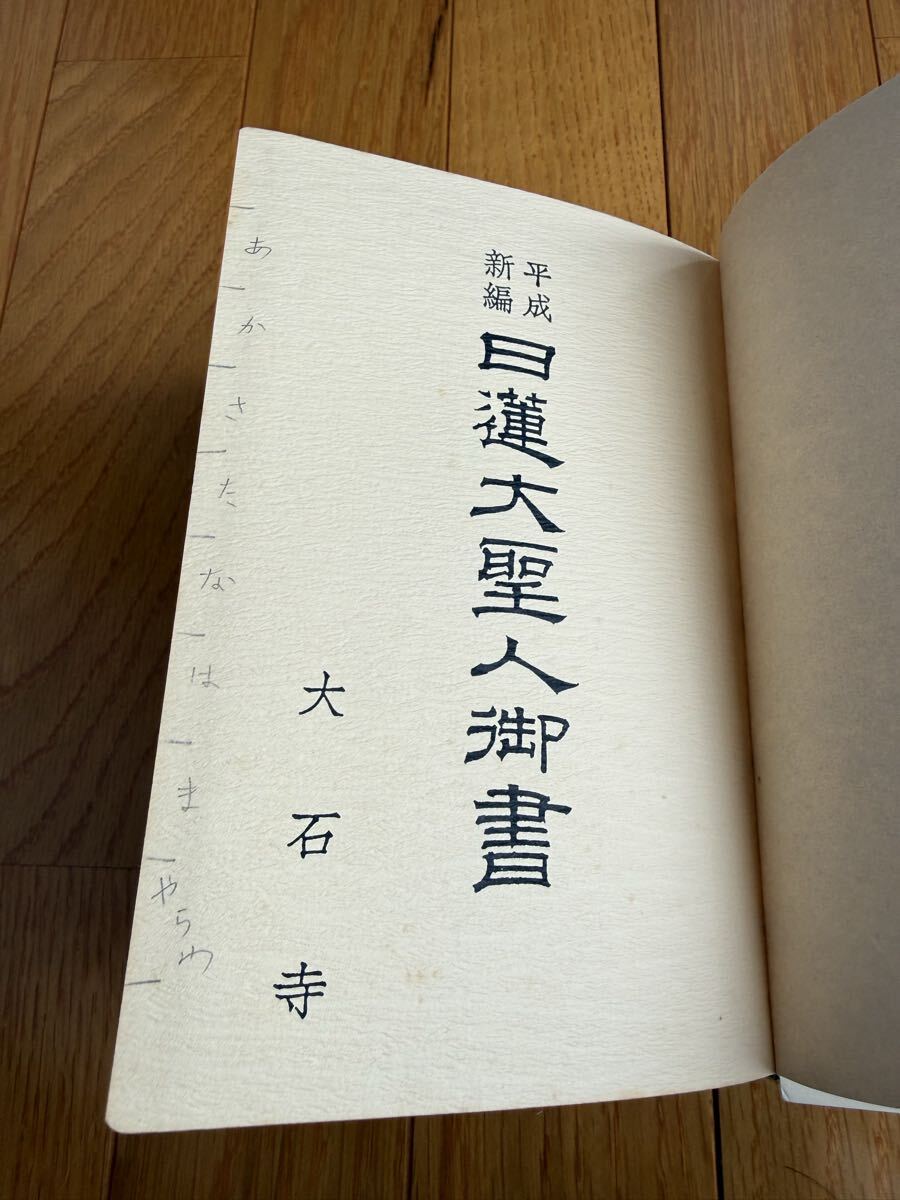 平成
新編
日蓮大聖人御書
大石寺
あ
か
さ
た
な
は
ま
やらわ